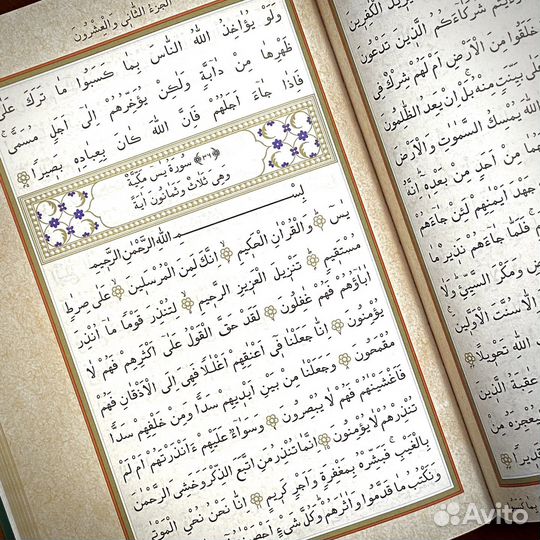 الجزء الثاني والعشرون
وَلَوْ يُؤَاخِذُ اللّٰهُ النَّاسَ بِمَا كَسَبُوا مَا تَرَكَ عَلٰى
ظَهْرِهَا مِنْ دَٓابَّةٍ وَلٰكِنْ يُؤَخِّرُهُمْ اِلٰٓى اَجَلٍ مُسَمًّى
فَاِذَا جَٓاءَ اَجَلُهُمْ فَاِنَّ اللّٰهَ كَانَ بِعِبَادِهٖ بَصٖيرًا
﴿٣٦﴾ سُورَةُ يٰسٓ مَكِّيَّةٌ
وَهِيَ ثَلَاثٌ وَثَمَانُونَ اٰيَةً
بِسْمِ اللّٰهِ الرَّحْمٰنِ الرَّحٖيمِ
يٰسٓ وَالْقُرْاٰنِ الْحَكٖيمِ اِنَّكَ لَمِنَ الْمُرْسَلٖينَ عَلٰى صِرَاطٍ
مُسْتَقٖيمٍ تَنْزٖيلَ الْعَزٖيزِ الرَّحٖيمِ لِتُنْذِرَ قَوْمًا مَٓا اُنْذِرَ
اٰبَٓاؤُهُمْ فَهُمْ غَافِلُونَ لَقَدْ حَقَّ الْقَوْلُ عَلٰٓى اَكْثَرِهِمْ فَهُمْ لَا
يُؤْمِنُونَ اِنَّا جَعَلْنَا فٖٓي اَعْنَاقِهِمْ اَغْلَالًا فَهِيَ اِلَى الْاَذْقَانِ فَهُمْ
مُقْمَحُونَ وَجَعَلْنَا مِنْ بَيْنِ اَيْدٖيهِمْ سَدًّا وَمِنْ خَلْفِهِمْ سَدًّا
فَاَغْشَيْنَاهُمْ فَهُمْ لَا يُبْصِرُونَ وَسَوَٓاءٌ عَلَيْهِمْ ءَاَنْذَرْتَهُمْ اَمْ لَمْ
تُنْذِرْهُمْ لَا يُؤْمِنُونَ اِنَّمَا تُنْذِرُ مَنِ اتَّبَعَ الذِّكْرَ وَخَشِيَ الرَّحْمٰنَ
بِالْغَيْبِ فَبَشِّرْهُ بِمَغْفِرَةٍ وَاَجْرٍ كَرٖيمٍ اِنَّا نَحْنُ نُحْيِ الْمَوْتٰى
وَنَكْتُبُ مَا قَدَّمُوا وَاٰثَارَهُمْ وَكُلَّ شَيْءٍ
الْكَافِرٖينَ
شُرَكَٓاءَكُمُ الَّذٖينَ تَدْعُونَ
خَلَقُوا مِنَ الْاَرْضِ اَمْ لَهُمْ شِرْكٌ فِي
عَلٰى بَيِّنَتٍ مِنْهُ بَلْ اِنْ يَعِدُ الظَّالِمُونَ
اللّٰهَ يُمْسِكُ السَّمٰوَاتِ وَالْاَرْضَ
مِنْ اَحَدٍ مِنْ بَعْدِهٖ اِنَّهُ
جَهْدَ اَيْمَانِهِمْ لَئِنْ جَٓاءَهُمْ
فَلَمَّا جَٓاءَهُمْ نَذٖيرٌ مَا
وَمَكْرَ السَّيِّئِ وَلَا
سُنَّتَ الْاَوَّلٖينَ
اللّٰهِ تَحْوٖيلًا
عَاقِبَةُ الَّذٖينَ
لِيُعْجِزَهُ مِنْ
قَدٖيرًا
Avito